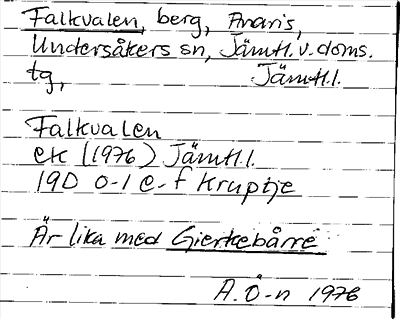 Falkvalen, berg, Anaris,
Undersåkers sn, Jämtl. v. doms.
tg, Jämtl.l.
Falkvalen
ek (1976) Jämtl.l.
19D 0-1 e-f Kruptje
Är lika med Gierkebårré
A. Ö-n 1976